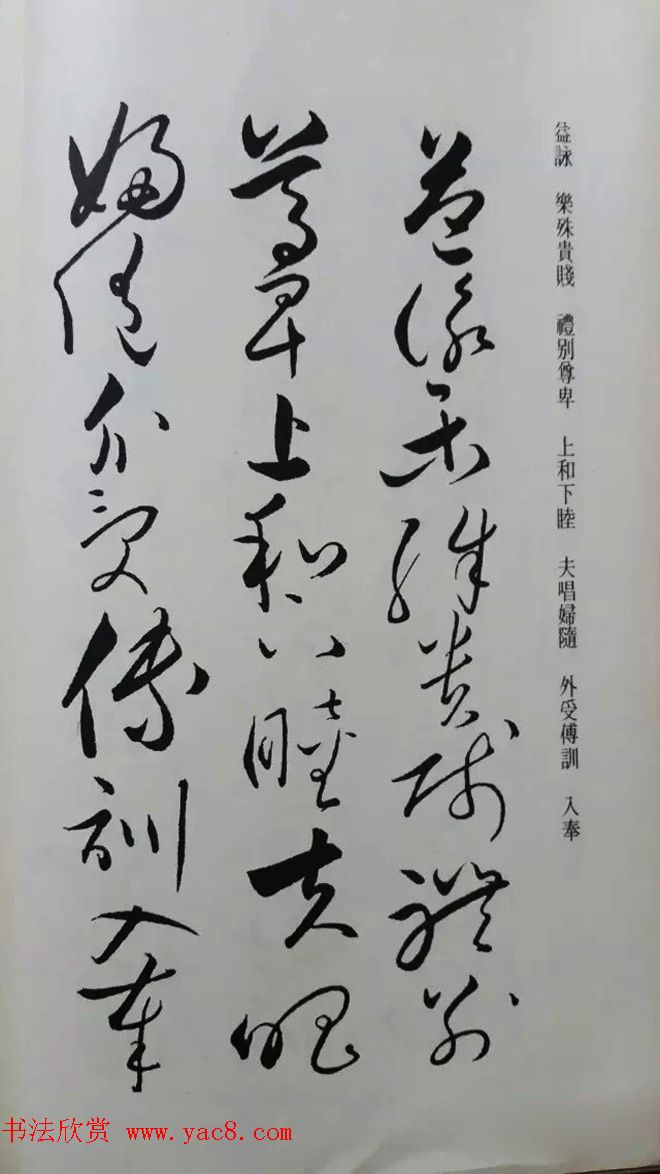 益詠 樂殊貴賤 禮別尊卑 上和下睦 夫唱婦隨 外受傅訓 入奉
益詠樂殊貴賤禮別
尊卑上和下睦夫唱
婦隨外受傅訓入奉
书法欣赏 www.yac8.com